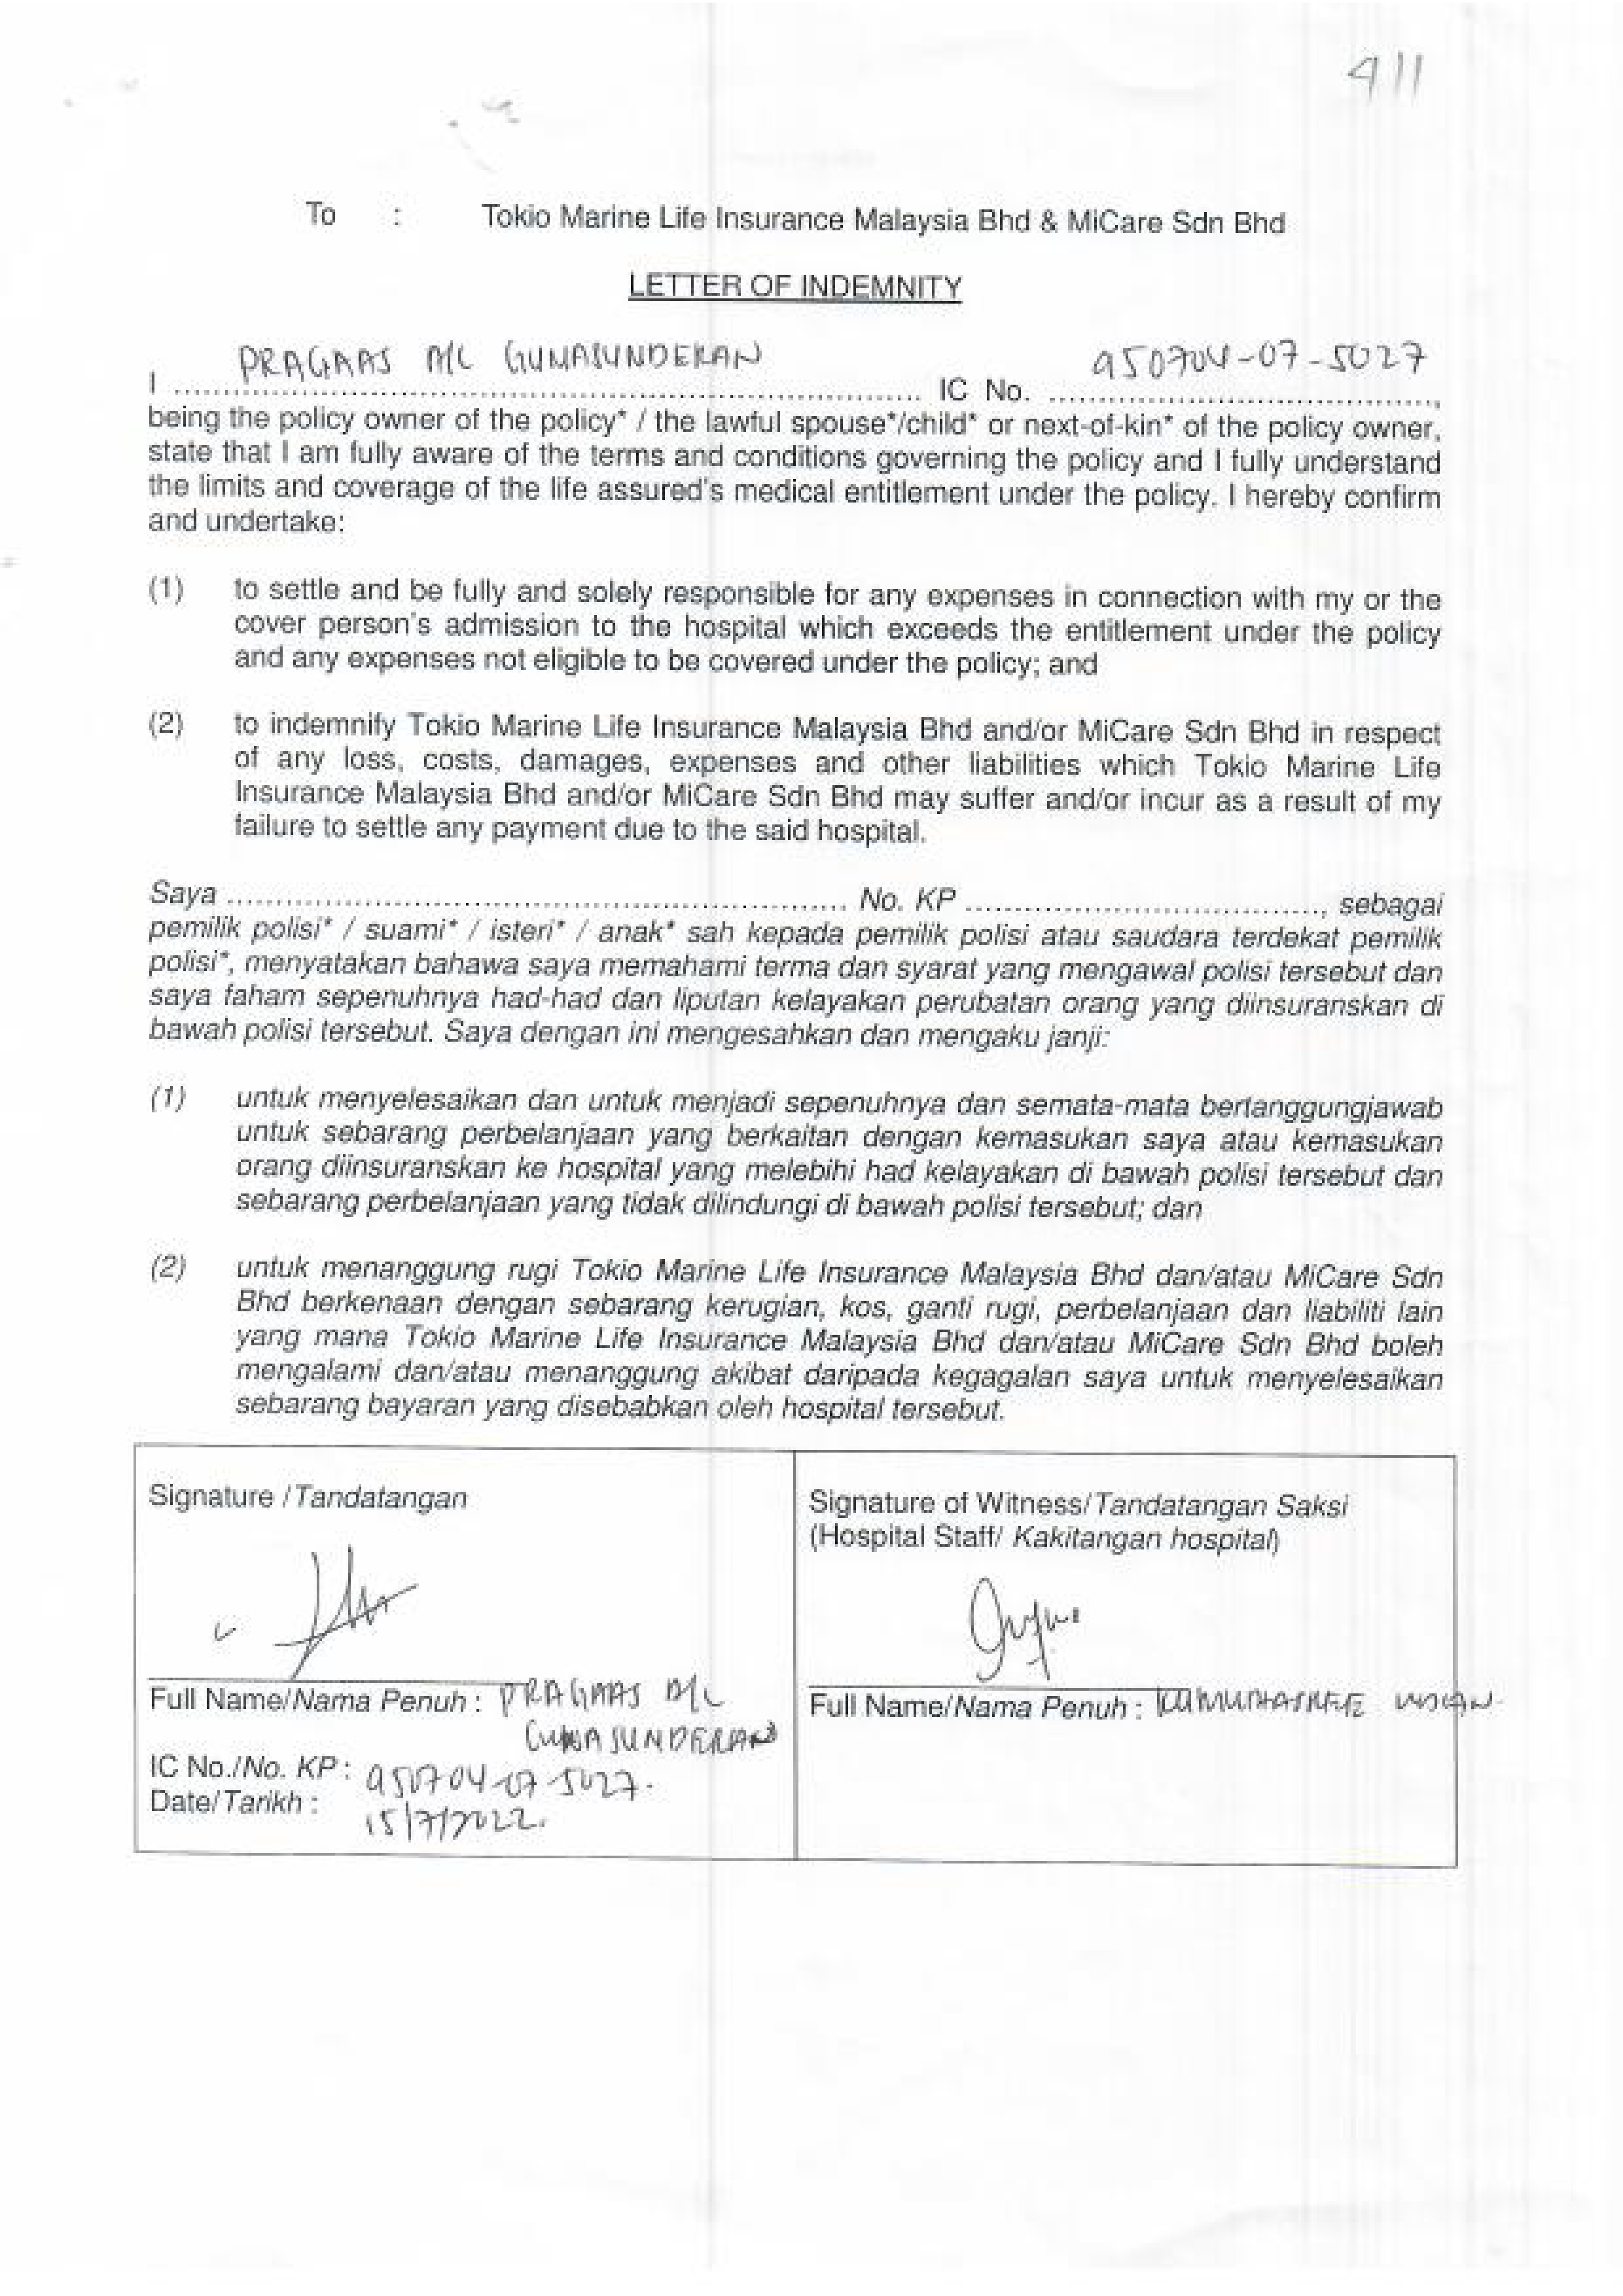 911
To : Tokio Marine Life Insurance Malaysia Bhd & MiCare Sdn Bhd
LETTER OF INDEMNITY
I PRAGAAS A/L GUNASUNDERAN IC No. 950704-07-5027,
being the policy owner of the policy* / the lawful spouse*/child* or next-of-kin* of the policy owner,
state that I am fully aware of the terms and conditions governing the policy and I fully understand
the limits and coverage of the life assured's medical entitlement under the policy. I hereby confirm
and undertake:
(1) to settle and be fully and solely responsible for any expenses in connection with my or the
cover person's admission to the hospital which exceeds the entitlement under the policy
and any expenses not eligible to be covered under the policy; and
(2) to indemnify Tokio Marine Life Insurance Malaysia Bhd and/or MiCare Sdn Bhd in respect
of any loss, costs, damages, expenses and other liabilities which Tokio Marine Life
Insurance Malaysia Bhd and/or MiCare Sdn Bhd may suffer and/or incur as a result of my
failure to settle any payment due to the said hospital.
Saya ............................................................. No. KP ..................................., sebagai
pemilik polisi* / suami* / isteri* / anak* sah kepada pemilik polisi atau saudara terdekat pemilik
polisi*, menyatakan bahawa saya memahami terma dan syarat yang mengawal polisi tersebut dan
saya faham sepenuhnya had-had dan liputan kelayakan perubatan orang yang diinsuranskan di
bawah polisi tersebut. Saya dengan ini mengesahkan dan mengaku janji:
(1) untuk menyelesaikan dan untuk menjadi sepenuhnya dan semata-mata bertanggungjawab
untuk sebarang perbelanjaan yang berkaitan dengan kemasukan saya atau kemasukan
orang diinsuranskan ke hospital yang melebihi had kelayakan di bawah polisi tersebut dan
sebarang perbelanjaan yang tidak dilindungi di bawah polisi tersebut; dan
(2) untuk menanggung rugi Tokio Marine Life Insurance Malaysia Bhd dan/atau MiCare Sdn
Bhd berkenaan dengan sebarang kerugian, kos, ganti rugi, perbelanjaan dan liabiliti lain
yang mana Tokio Marine Life Insurance Malaysia Bhd dan/atau MiCare Sdn Bhd boleh
mengalami dan/atau menanggung akibat daripada kegagalan saya untuk menyelesaikan
sebarang bayaran yang disebabkan oleh hospital tersebut.
Signature /Tandatangan
Full Name/Nama Penuh : PRAGAAS A/L
GUNASUNDERAN
IC No./No. KP : 950704-07-5027.
Date/Tarikh : 15/7/2022.
Signature of Witness/Tandatangan Saksi
(Hospital Staff/ Kakitangan hospital)
Full Name/Nama Penuh :